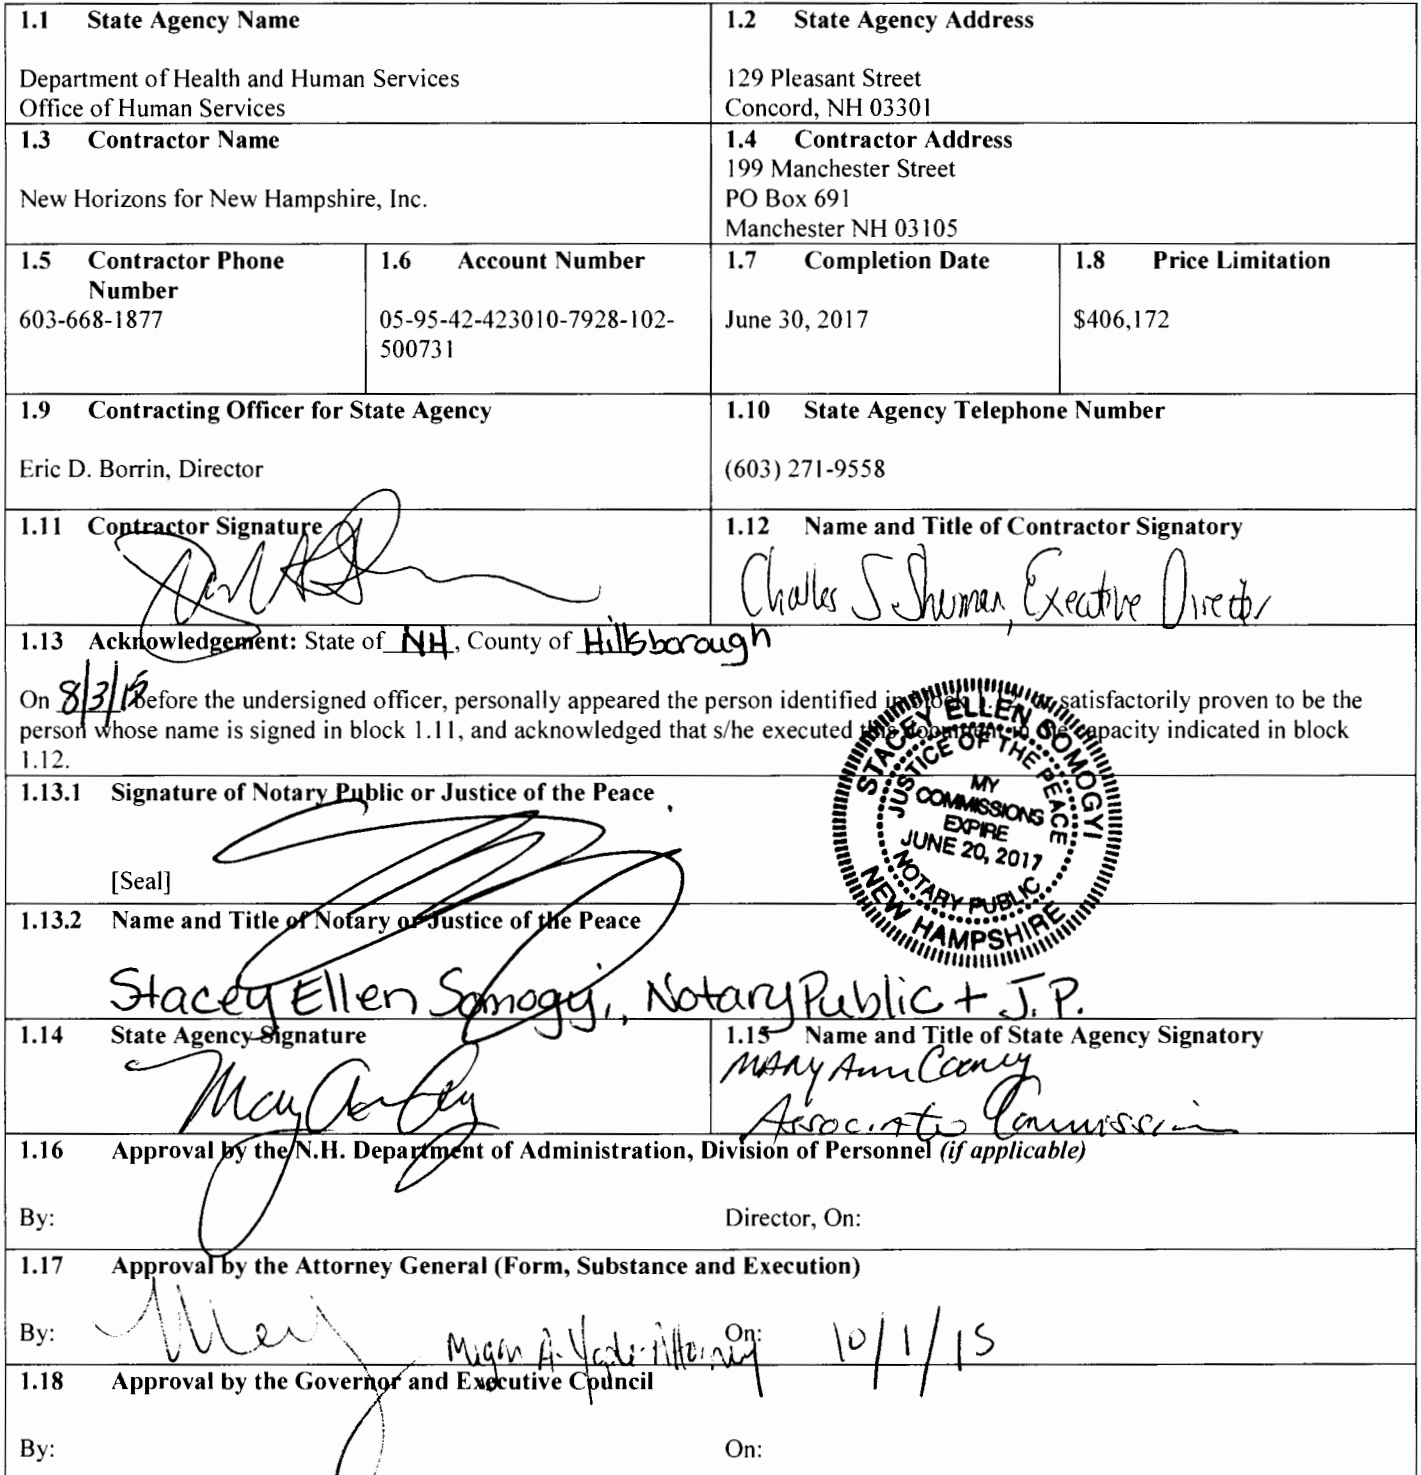 1.1 State Agency Name
Department of Health and Human Services
Office of Human Services
1.2 State Agency Address
129 Pleasant Street
Concord, NH 03301
1.3 Contractor Name
New Horizons for New Hampshire, Inc.
1.4 Contractor Address
199 Manchester Street
PO Box 691
Manchester NH 03105
1.5 Contractor Phone
Number
603-668-1877
1.6 Account Number
05-95-42-423010-7928-102-
500731
1.7 Completion Date
June 30, 2017
1.8 Price Limitation
$406,172
1.9 Contracting Officer for State Agency
Eric D. Borrin, Director
1.10 State Agency Telephone Number
(603) 271-9558
1.11 Contractor Signature
1.12 Name and Title of Contractor Signatory
Charles S. Sherman, Executive Director
1.13 Acknowledgement: State of NH, County of Hillsborough
On 8/3/15 before the undersigned officer, personally appeared the person identified in block 1.12, or satisfactorily proven to be the
person whose name is signed in block 1.11, and acknowledged that s/he executed this document in the capacity indicated in block
1.12.
1.13.1 Signature of Notary Public or Justice of the Peace
[Seal]
STACEY ELLEN SOMOGYI
JUSTICE OF THE PEACE
MY
COMMISSIONS
EXPIRE
JUNE 20, 2017
NOTARY PUBLIC
NEW HAMPSHIRE
1.13.2 Name and Title of Notary or Justice of the Peace
Stacey Ellen Somogyi, Notary Public + J.P.
1.14 State Agency Signature
1.15 Name and Title of State Agency Signatory
Mary Ann Cooney
Associate Commissioner
1.16 Approval by the N.H. Department of Administration, Division of Personnel (if applicable)
By:
Director, On:
1.17 Approval by the Attorney General (Form, Substance and Execution)
By: Megan A. Attorney
On: 10/1/15
1.18 Approval by the Governor and Executive Council
By:
On: